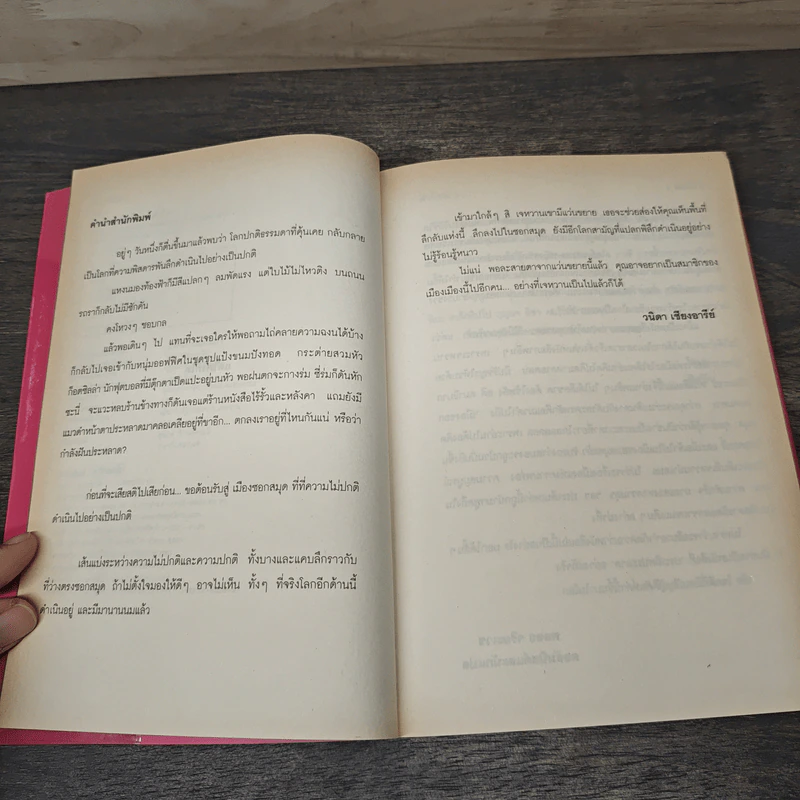 คำนำสำนักพิมพ์
อยู่ๆ วันหนึ่งก็ตื่นขึ้นมาแล้วพบว่า โลกปกติธรรมดาที่คุ้นเคย กลับกลาย
เป็นโลกที่ความพิสดารพันลึกดำเนินไปอย่างเป็นปกติ
แหงนมองท้องฟ้าก็มีสีแปลกๆ ลมพัดแรง แต่ใบไม้ไม่ไหวติง บนถนน
รถราก็กลับไม่มีซักคัน
คงโหวงๆ ชอบกล
แล้วพอเดินๆ ไป แทนที่จะเจอใครให้พอถามไถ่คลายความฉงนได้บ้าง
ก็กลับไปเจอเข้ากับหนุ่มออฟฟิศในชุดชุปแป้งขนมปังทอด กระต่ายสวมหัว
ก็อดซิลล่า นักฟุตบอลที่มีตุ๊กตาเป็ดแปะอยู่บนหัว พอฝนตกจะกางร่ม ซี่ร่มก็ดันหัก
ซะนี่ จะแวะหลบร้านข้างทางก็ดันเจอแต่ร้านหนังสือไร้รั้วและหลังคา แถมยังมี
แมวดำหน้าตาประหลาดมาคลอเคลียอยู่ที่ขาอีก... ตกลงเราอยู่ที่ไหนกันแน่ หรือว่า
กำลังฝันประหลาด?
ก่อนที่จะเสียสติไปเสียก่อน... ขอต้อนรับสู่ เมืองซอกสมุด ที่ที่ความไม่ปกติ
ดำเนินไปอย่างเป็นปกติ
เส้นแบ่งระหว่างความไม่ปกติและความปกติ ทั้งบางและแคบลึกราวกับ
ที่ว่างตรงซอกสมุด ถ้าไม่ตั้งใจมองให้ดีๆ อาจไม่เห็น ทั้งๆ ที่จริงโลกอีกด้านนี้
ดำเนินอยู่ และมีมานานนมแล้ว
เข้ามาใกล้ๆ สิ เจหวานเขามีแว่นขยาย เธอจะช่วยส่องให้คุณเห็นพื้นที่
ลึกลับแห่งนี้ ลึกลงไปในซอกสมุด ยังมีอีกโลกสามัญที่แปลกพิลึกดำเนินอยู่อย่าง
ไม่รู้ร้อนรู้หนาว
ไม่แน่ พอละสายตาจากแว่นขยายนี้แล้ว คุณอาจอยากเป็นสมาชิกของ
เมืองเมืองนี้ไปอีกคน... อย่างที่เจหวานเป็นไปแล้วก็ได้
วนิดา เชียงอารีย์